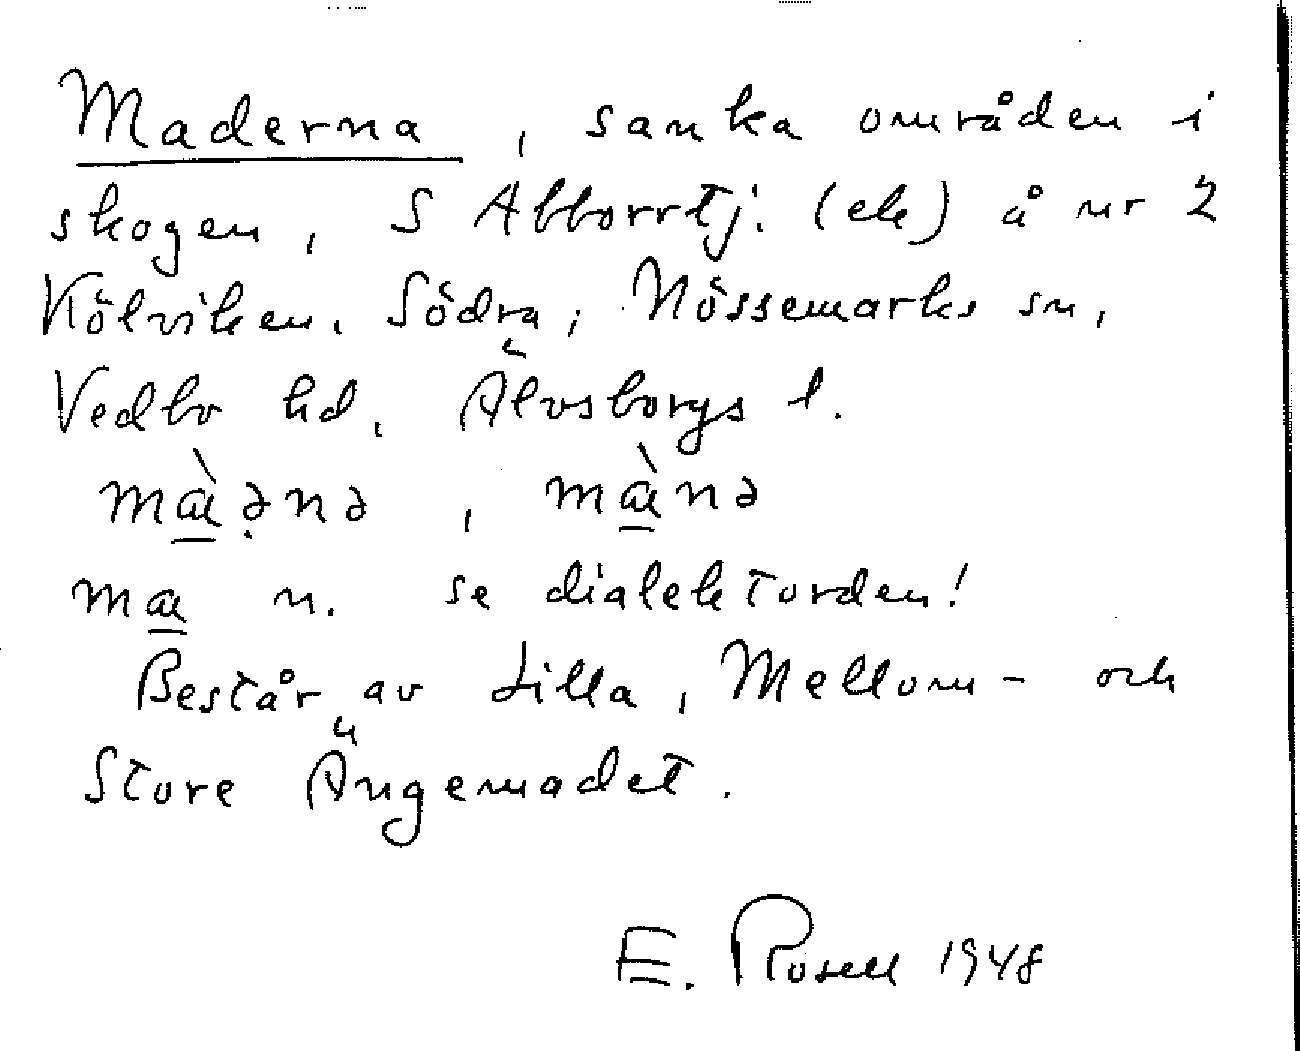 Maderna, sanka områden i
skogen, S Abborrtj. (ek) å nr 2
Kölviken, Södra, Nössemarks sn,
Vedbo hd, Älvsborgs l.
mæ̀ənə, mæ̀nə
mæ n. se dialektorden!
Består av Lilla, Mellom- och
Store Ängemadet.
E. Rosell 1948